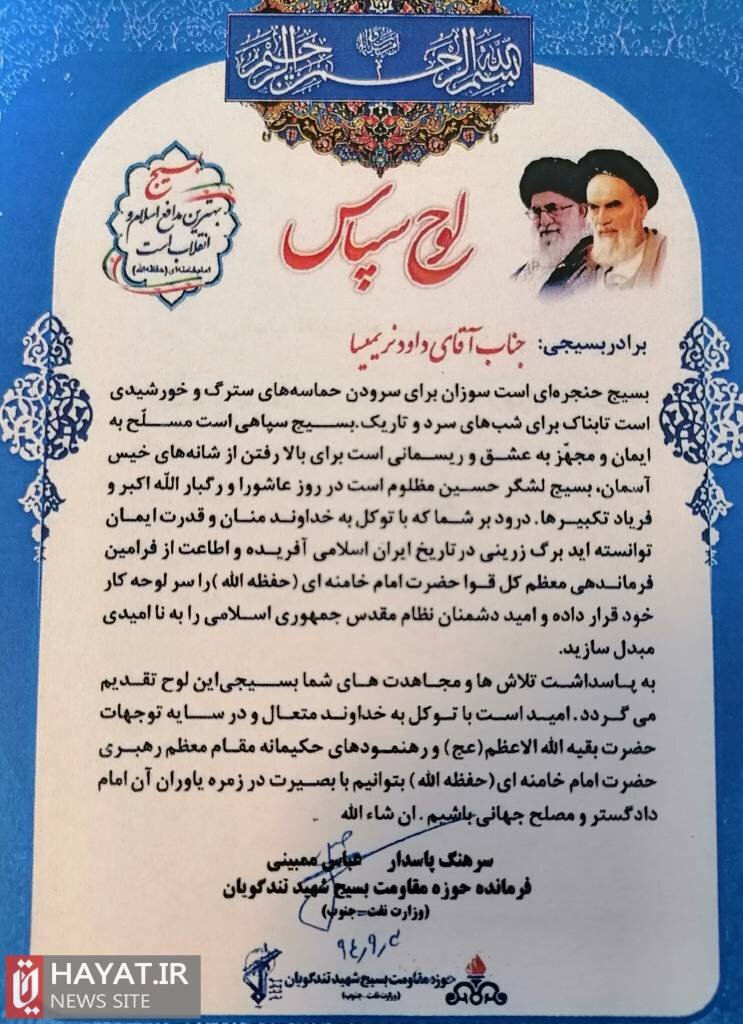 بسم الله الرحمن الرحیم
بسیج
بهترین مدافع اسلام و
انقلاب است
امام خامنه ای (حفظه الله)
لوح سپاس
برادر بسیجی: جناب آقای داود نریمیسا
بسیج حنجره‌ای است سوزان برای سرودن حماسه‌های سترگ و خورشیدی
است تابناک برای شب‌های سرد و تاریک.بسیج سپاهی است مسلّح به
ایمان و مجهّز به عشق و ریسمانی است برای بالا رفتن از شانه‌های خیس
آسمان، بسیج لشگر حسین مظلوم است در روز عاشورا و رگبار الله اکبر و
فریاد تکبیرها. درود بر شما که با توکل به خداوند منان و قدرت ایمان
توانسته اید برگ زرینی در تاریخ ایران اسلامی آفریده و اطاعت از فرامین
فرماندهی معظم کل قوا حضرت امام خامنه ای (حفظه الله )را سر لوحه کار
خود قرار داده و امید دشمنان نظام مقدس جمهوری اسلامی را به نا امیدی
مبدل سازید.
به پاسداشت تلاش ها و مجاهدت های شما بسیجی‌این لوح تقدیم
می گردد. امید است با توکل به خداوند متعال و در سایه توجهات
حضرت بقیه الله الاعظم(عج) و رهنمودهای حکیمانه مقام معظم رهبری
حضرت امام خامنه ای(حفظه الله ) بتوانیم با بصیرت در زمره یاوران آن امام
دادگستر و مصلح جهانی باشیم . ان شاء الله
سرهنگ پاسدار عباس ممبینی
فرمانده حوزه مقاومت بسیج شهید تندگویان
(وزارت نفت-جنوب)
۹۴٫۹٫۴
حوزه مقاومت بسیج شهید تندگویان
(وزارت نفت-جنوب)
HAYAT.IR
NEWS SITE